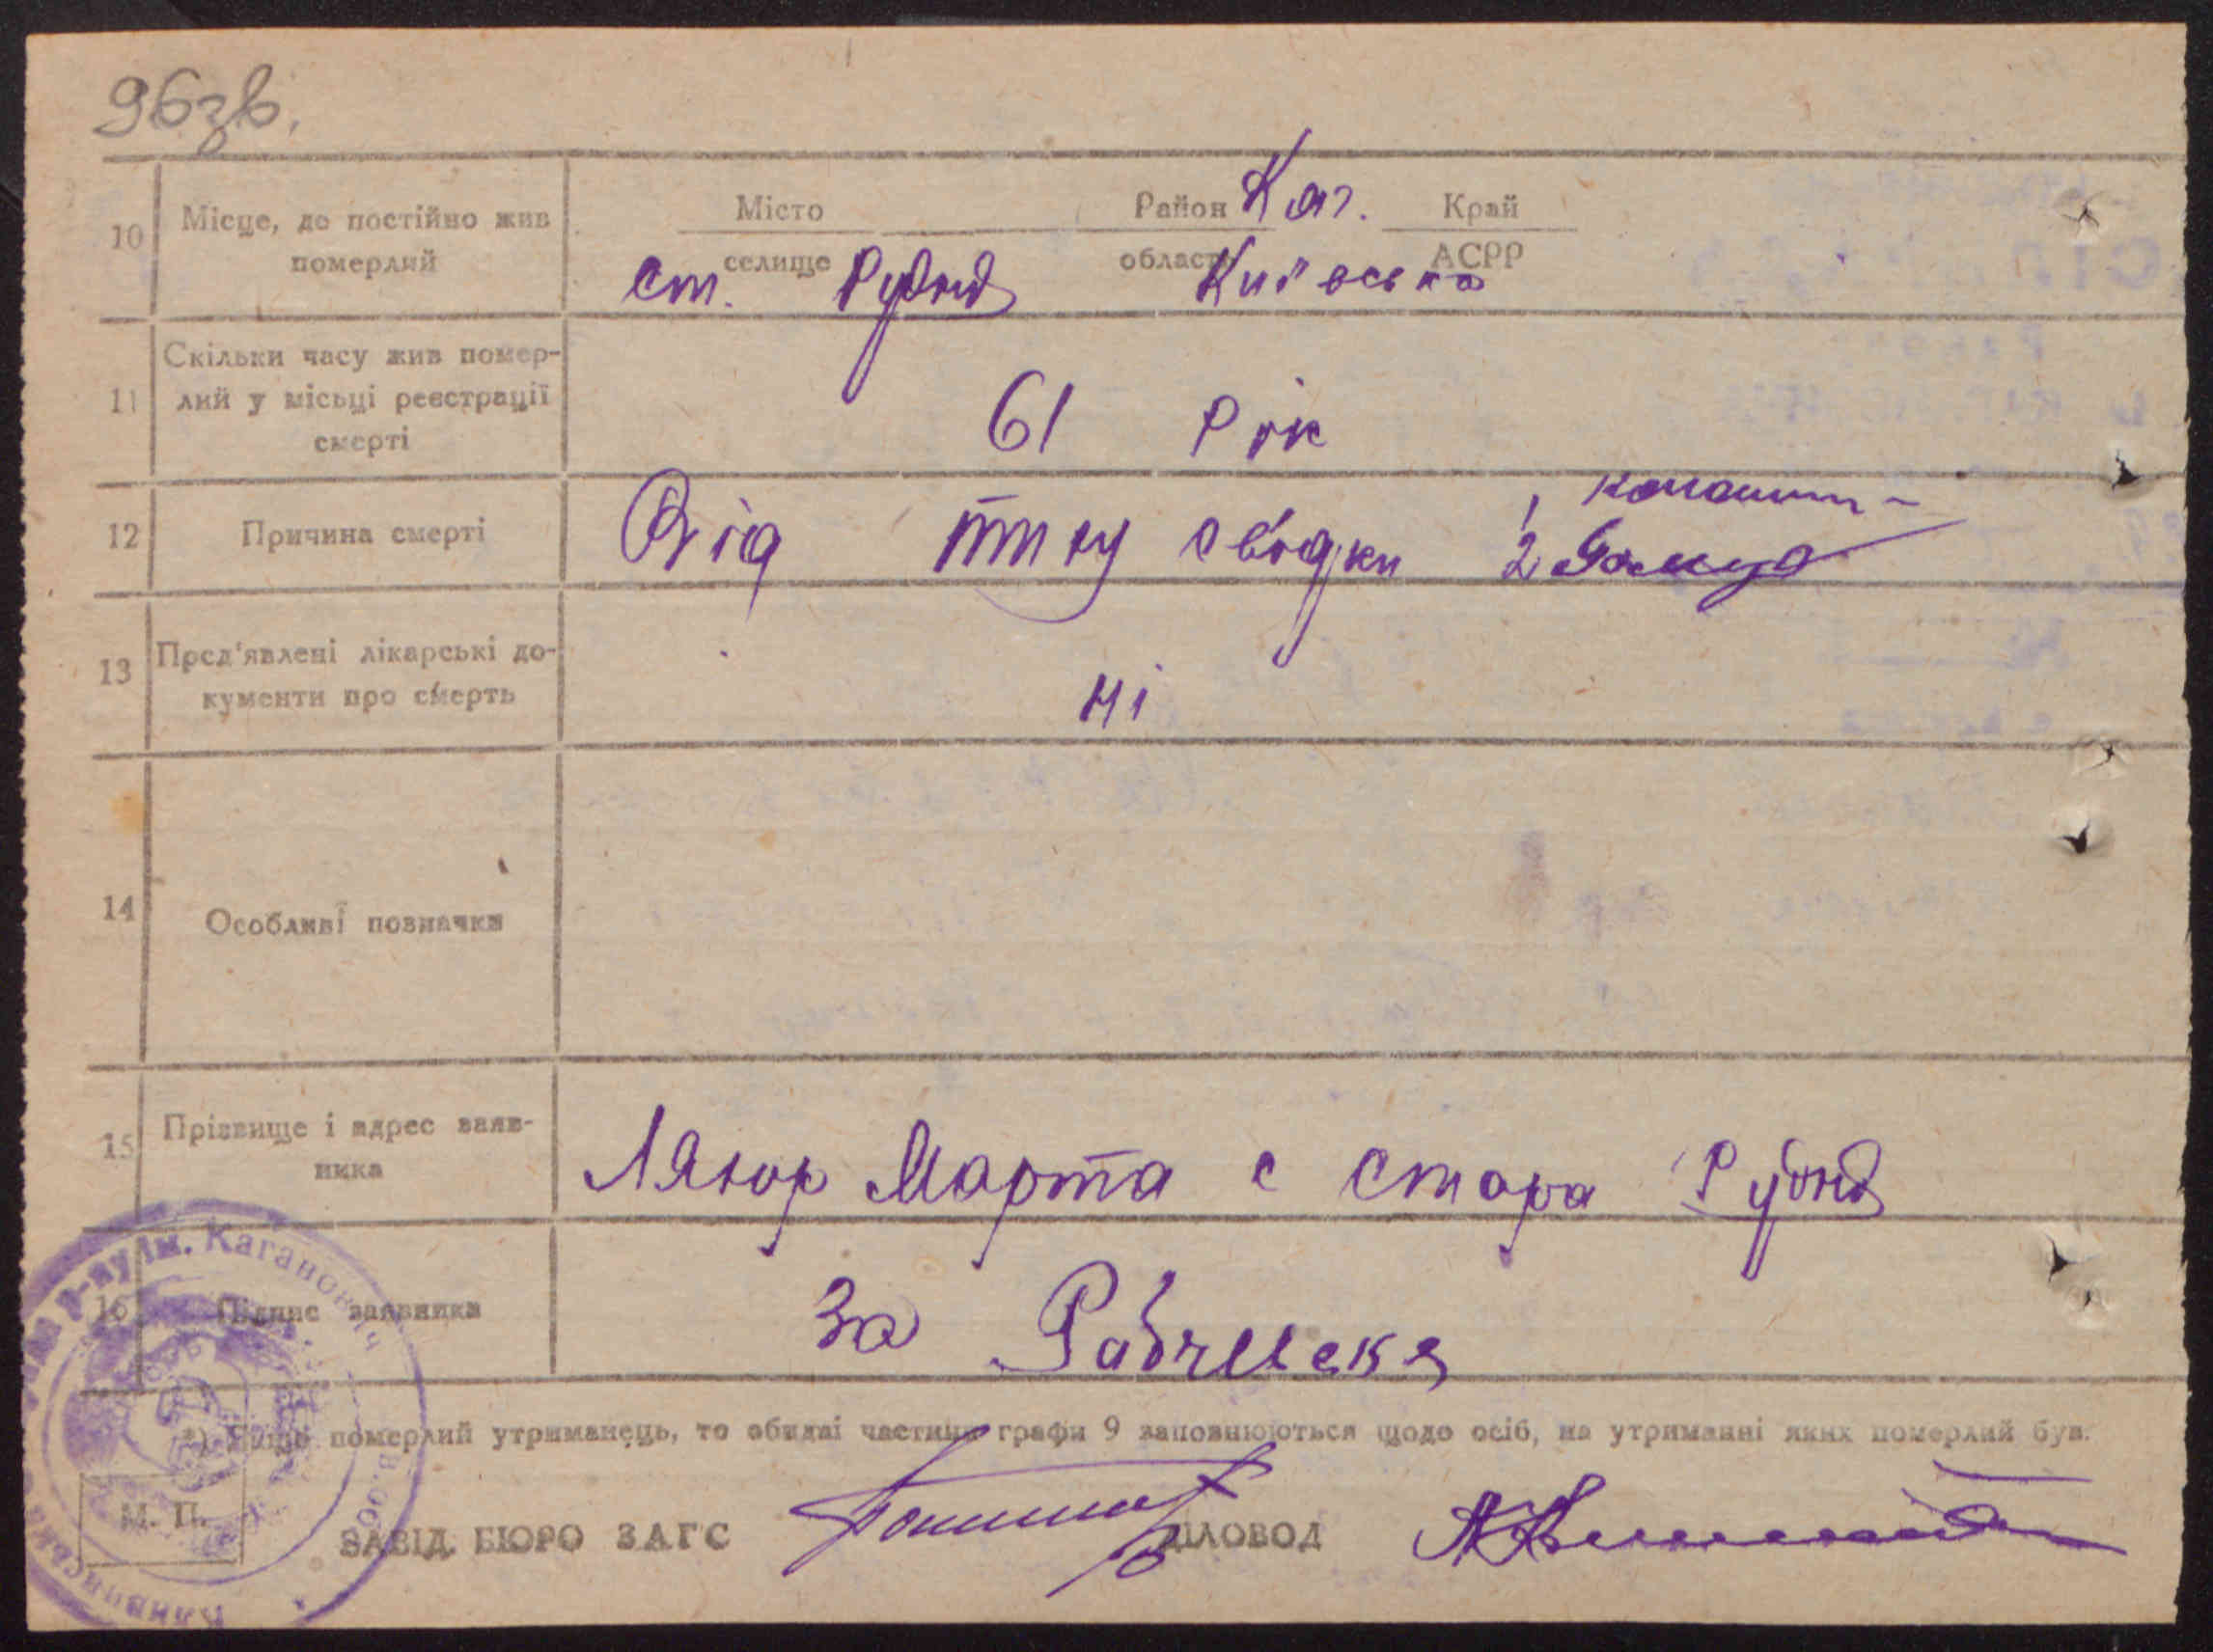 96 зв.
10 Місце, де постійно жив померлий
Місто Район Каг. Край
селище область АСРР
ст. Рудня Київська
11 Скільки часу жив помер-
лий у місьці реєстрації
смерті
61 рік
12 Причина смерті
Від
13 Пред'явлені лікарські до-
кументи про смерть
ні
14 Особливі позначки
15 Прізвище і адрес заяв-
ника
Марта с стара Рудня
16 Підпис заявника
За
*) Якщо померлий утриманець, то обидві частини графи 9 заповнюються щодо осіб, на утриманні яких померлий був.
М. П.
ЗАВІД. БЮРО ЗАГС ДІЛОВОД
р-ну ім. Кагановича